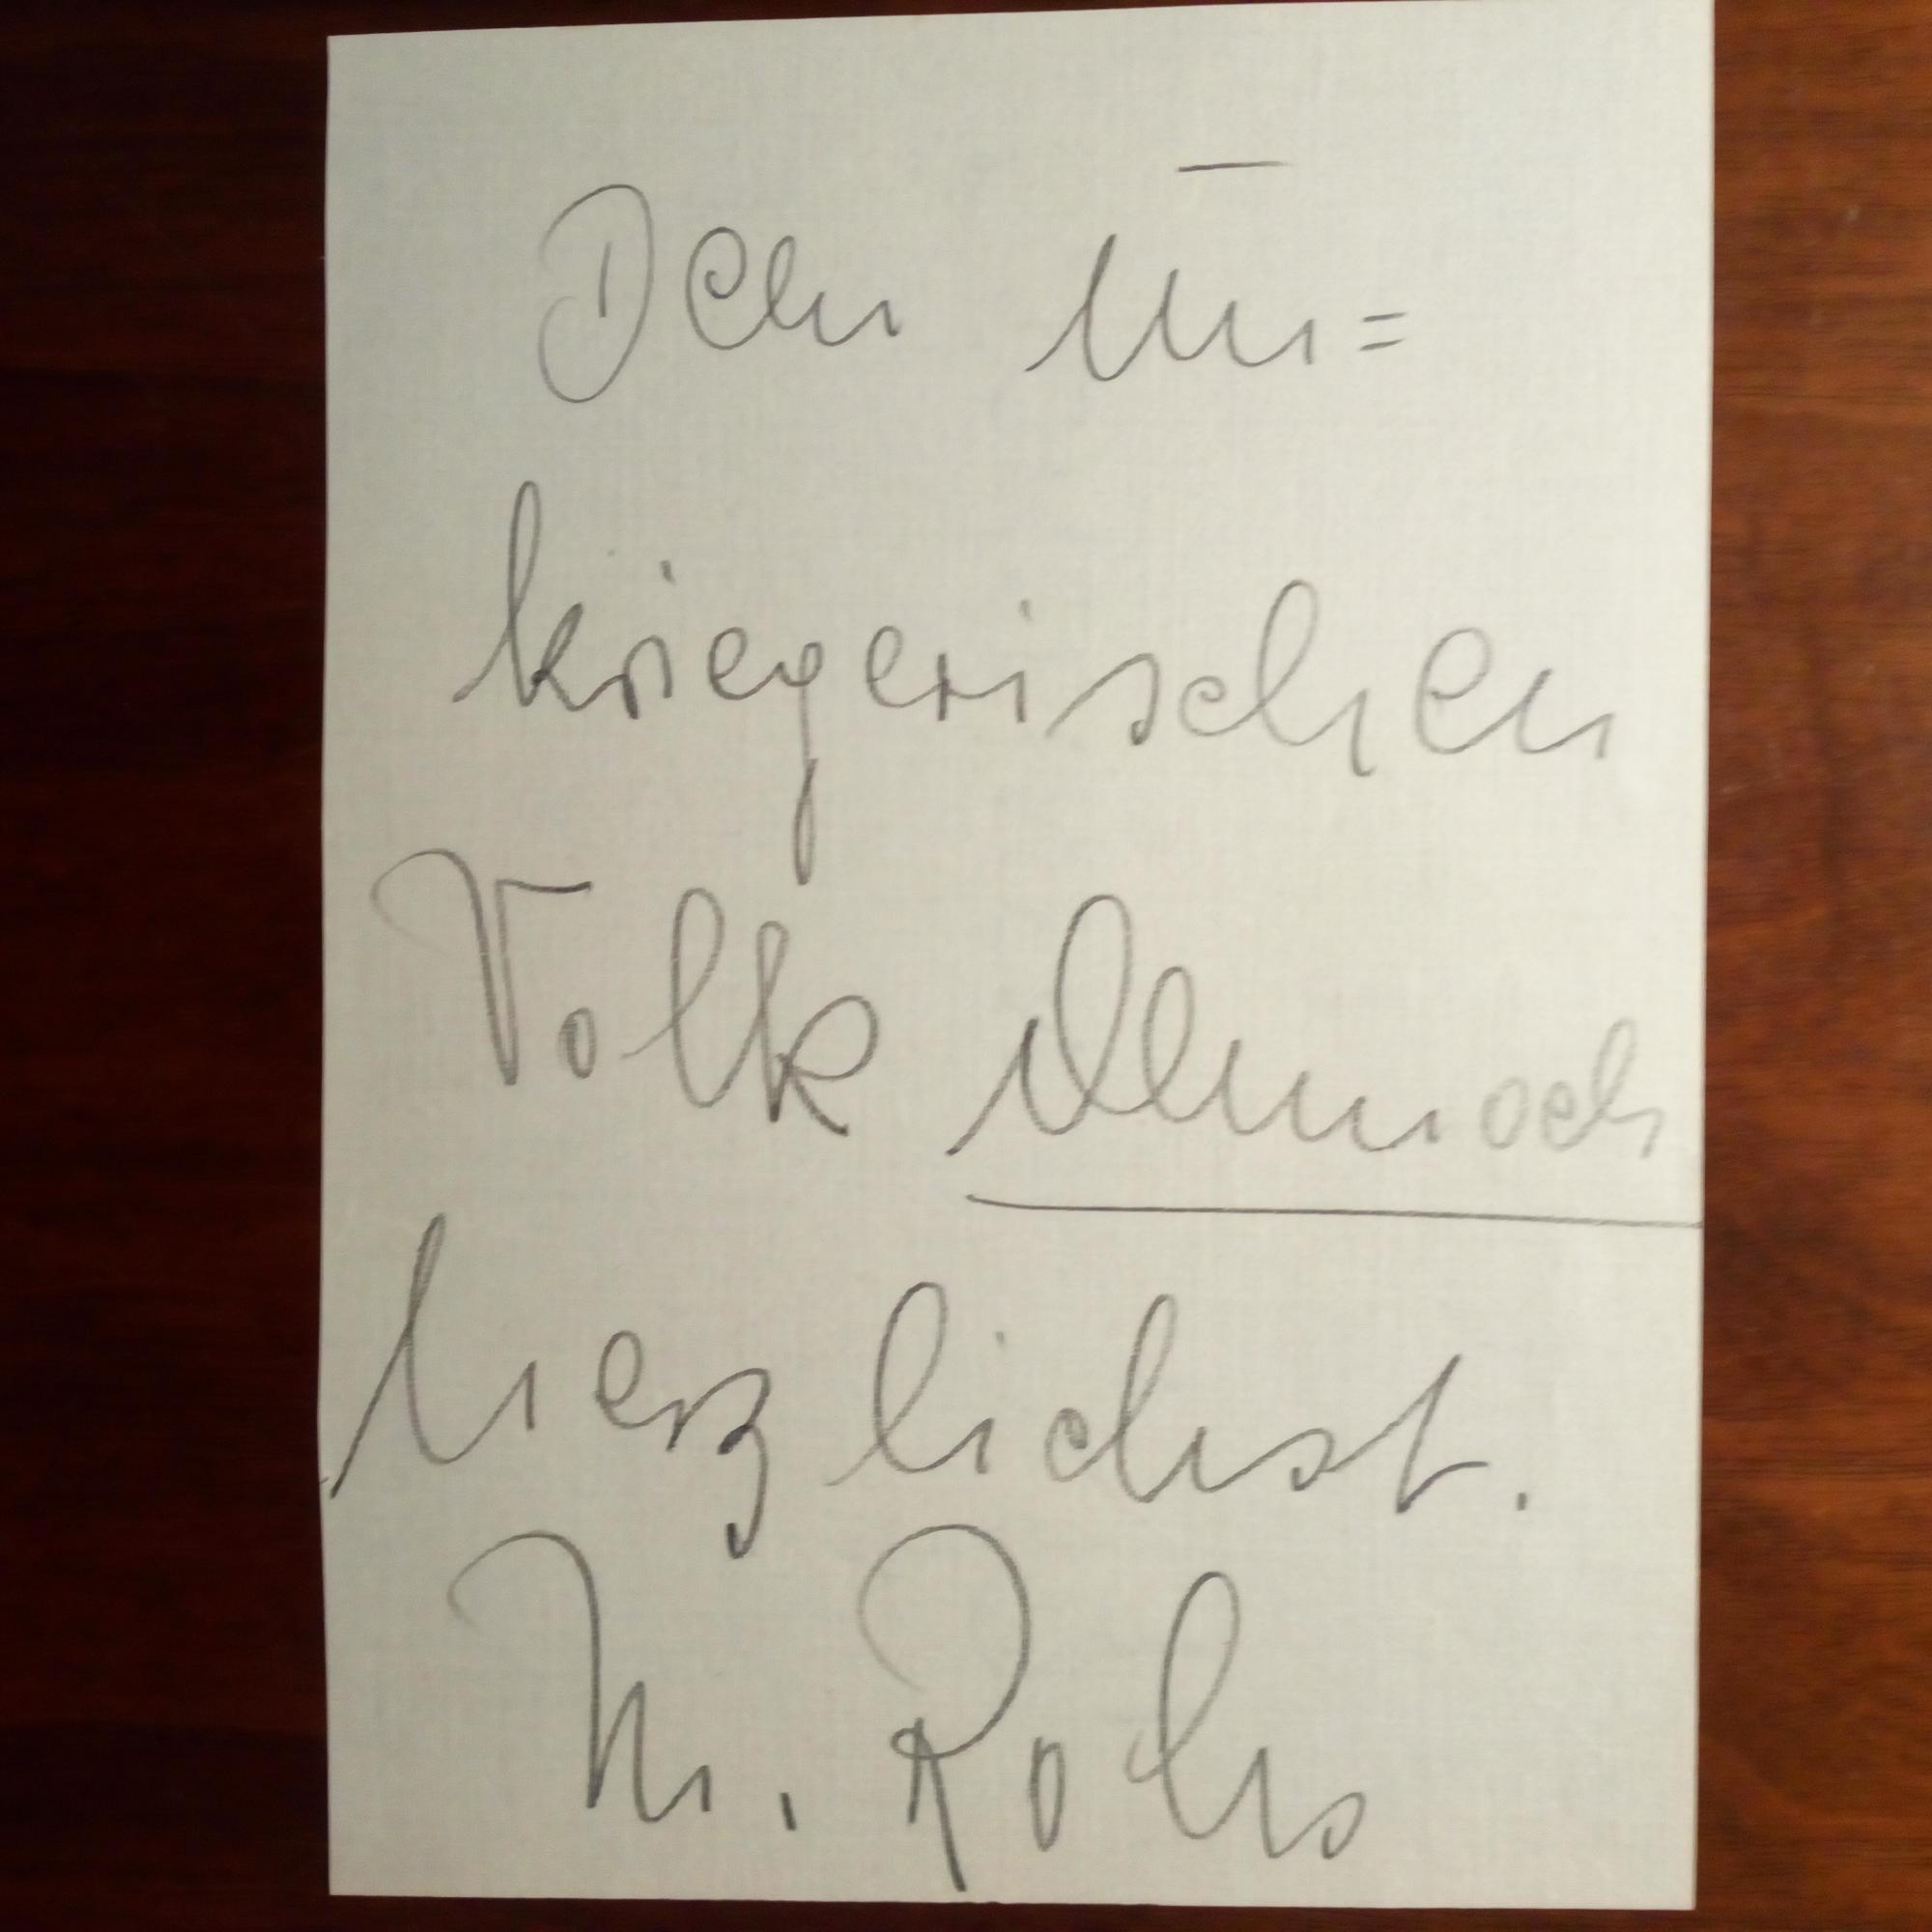 Dem un=
kriegerischen
Volk dennoch
herzlichst.
M. Rohs